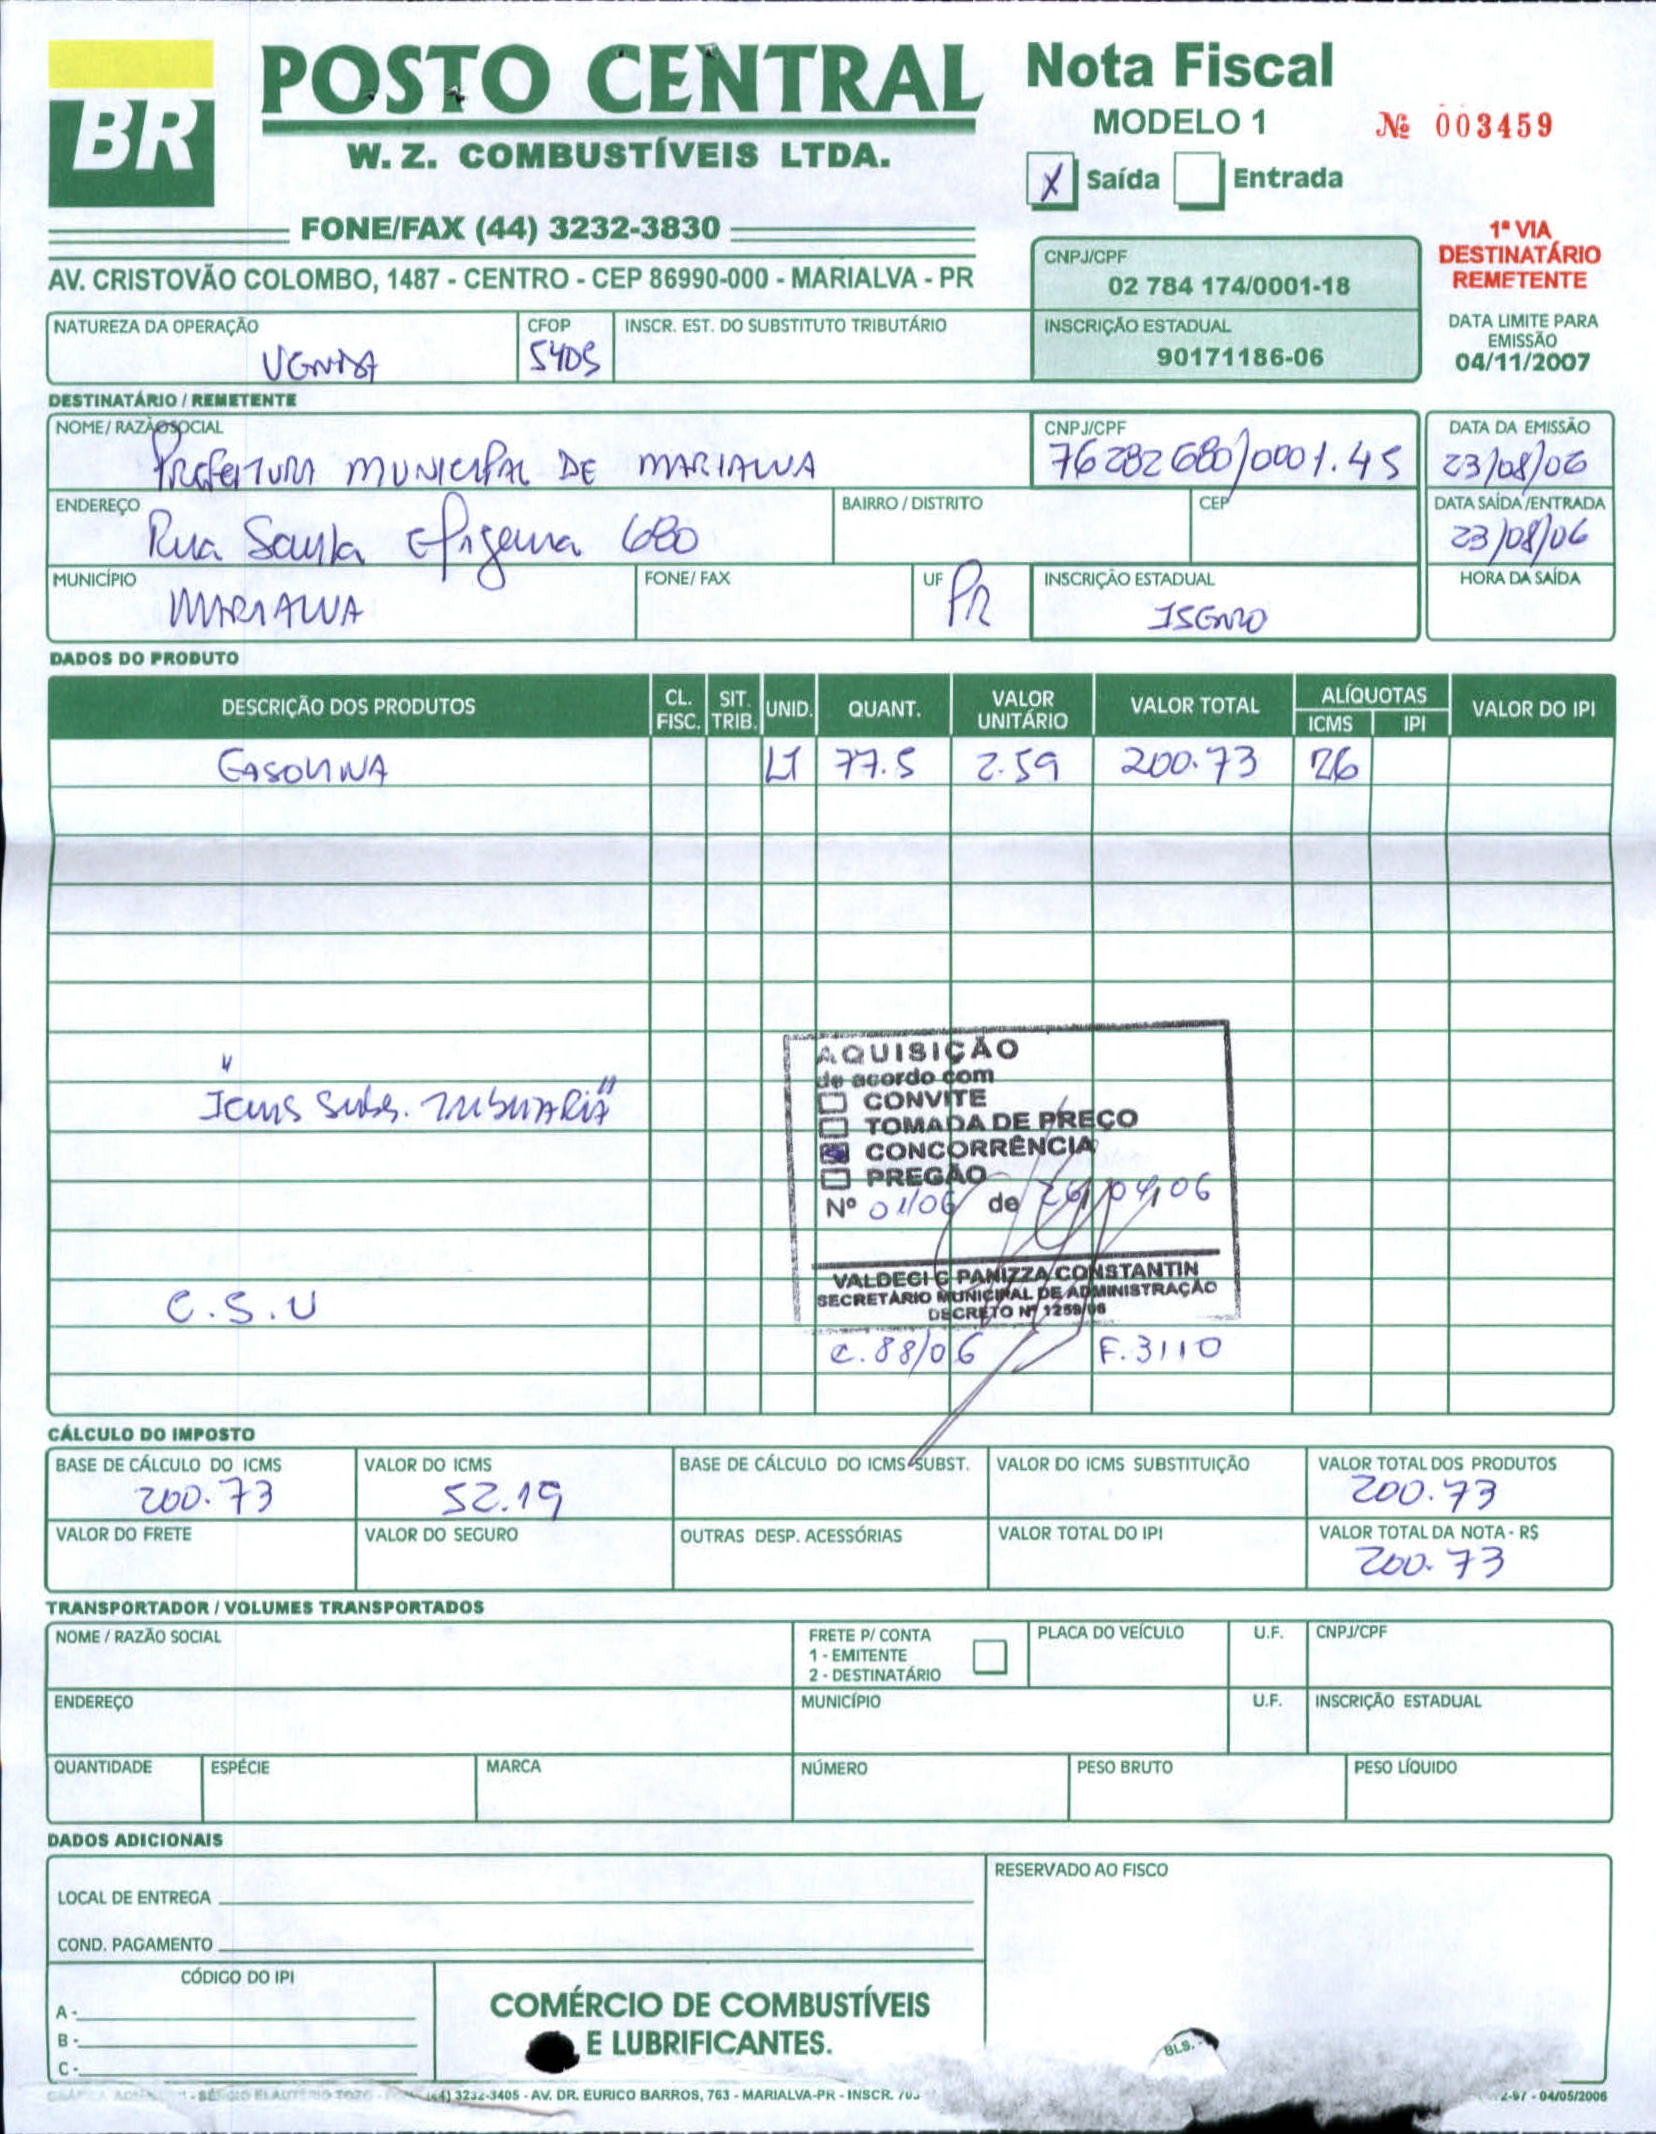 BR
POSTO CENTRAL
W. Z. COMBUSTÍVEIS LTDA.
FONE/FAX (44) 3232-3830
AV. CRISTOVÃO COLOMBO, 1487 - CENTRO - CEP 86990-000 - MARIALVA - PR
Nota Fiscal
MODELO 1
Nº 003459
X Saída Entrada
1ª VIA
DESTINATÁRIO
REMETENTE
CNPJ/CPF
02 784 174/0001-18
INSCRIÇÃO ESTADUAL
90171186-06
DATA LIMITE PARA
EMISSÃO
04/11/2007
NATUREZA DA OPERAÇÃO CFOP INSCR. EST. DO SUBSTITUTO TRIBUTÁRIO
VENDA 5405
DESTINATÁRIO / REMETENTE
NOME/ RAZÃO SOCIAL CNPJ/CPF DATA DA EMISSÃO
PREFEITURA MUNICIPAL DE MARIALVA 76282680/0001.45 23/08/06
ENDEREÇO BAIRRO / DISTRITO CEP DATA SAÍDA/ENTRADA
Rua Santa Efigenia 680 23/08/06
MUNICÍPIO FONE/ FAX UF INSCRIÇÃO ESTADUAL HORA DA SAÍDA
MARIALVA PR ISENTO
DADOS DO PRODUTO
DESCRIÇÃO DOS PRODUTOS CL. FISC. SIT. TRIB. UNID. QUANT. VALOR UNITÁRIO VALOR TOTAL ALÍQUOTAS ICMS IPI VALOR DO IPI
GASOLINA LT 77.5 2.59 200.73 26
"Icms Subs. TRIBUTARIA"
C.S.U
AQUISIÇÃO
de acordo com
CONVITE
TOMADA DE PREÇO
CONCORRÊNCIA
PREGÃO
Nº 01/06 de 26/04/06
VALDECI C PANIZZA CONSTANTIN
SECRETÁRIO MUNICIPAL DE ADMINISTRAÇÃO
DECRETO Nº 1259/06
C.88/06 F.3110
CÁLCULO DO IMPOSTO
BASE DE CÁLCULO DO ICMS VALOR DO ICMS BASE DE CÁLCULO DO ICMS SUBST. VALOR DO ICMS SUBSTITUIÇÃO VALOR TOTAL DOS PRODUTOS
200.73 52.19 200.73
VALOR DO FRETE VALOR DO SEGURO OUTRAS DESP. ACESSÓRIAS VALOR TOTAL DO IPI VALOR TOTAL DA NOTA - R$
200.73
TRANSPORTADOR / VOLUMES TRANSPORTADOS
NOME / RAZÃO SOCIAL FRETE P/ CONTA PLACA DO VEÍCULO U.F. CNPJ/CPF
1 - EMITENTE
2 - DESTINATÁRIO
ENDEREÇO MUNICÍPIO U.F. INSCRIÇÃO ESTADUAL
QUANTIDADE ESPÉCIE MARCA NÚMERO PESO BRUTO PESO LÍQUIDO
DADOS ADICIONAIS
LOCAL DE ENTREGA
COND. PAGAMENTO
RESERVADO AO FISCO
CÓDIGO DO IPI
A -
B -
C -
COMÉRCIO DE COMBUSTÍVEIS
E LUBRIFICANTES.
BLS.
(44) 3232-3405 - AV. DR. EURICO BARROS, 763 - MARIALVA-PR - INSCR. - 04/05/2006